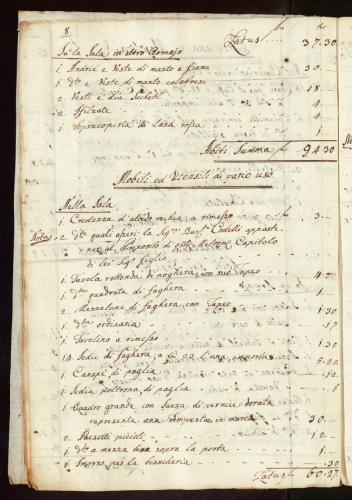 8.
Latus f 37.30
Su la Sala in altro Armajo
1. Andrié e Veste di manto a fiame 30.
1. dto e Veste di manto calabrese 18
2. Vesti e due 4
2. Sfilzate 4
1. Sopracoperta di Lana rossa 1
Monti Summa f 94.30
Mobili ed Utensili di vario uso
Nella Sala
1. Credenza d'albedo vechia a rimesso f 3
Nota 2. dte quali asserì la Sigra Codelli apparte
nere al Preposito di questo Capitolo
di lei Sigr figlio
1. Tavola rottonda di noghera, con suo Tapeo 4
1. dta quadrata di faghera 1
2. Mezzelune di faghera, con Tapeo 1.30
1. dta ordinaria 17
1. Tavolino a rimesso 1.30
14. Sedie di faghera, a 23 l'una, importa 5.22
1. Canapé di paglia 12
1. Sedia poltrona di paglia 6
1. Quadro grande con Suaza di vernice dorata
rapresenta una Tempesta in mare 30.
2. Paesetti piccioli 12
1. dto a mezza sopra la porta 1
1. per la biancheria 30
Latus f 60.27